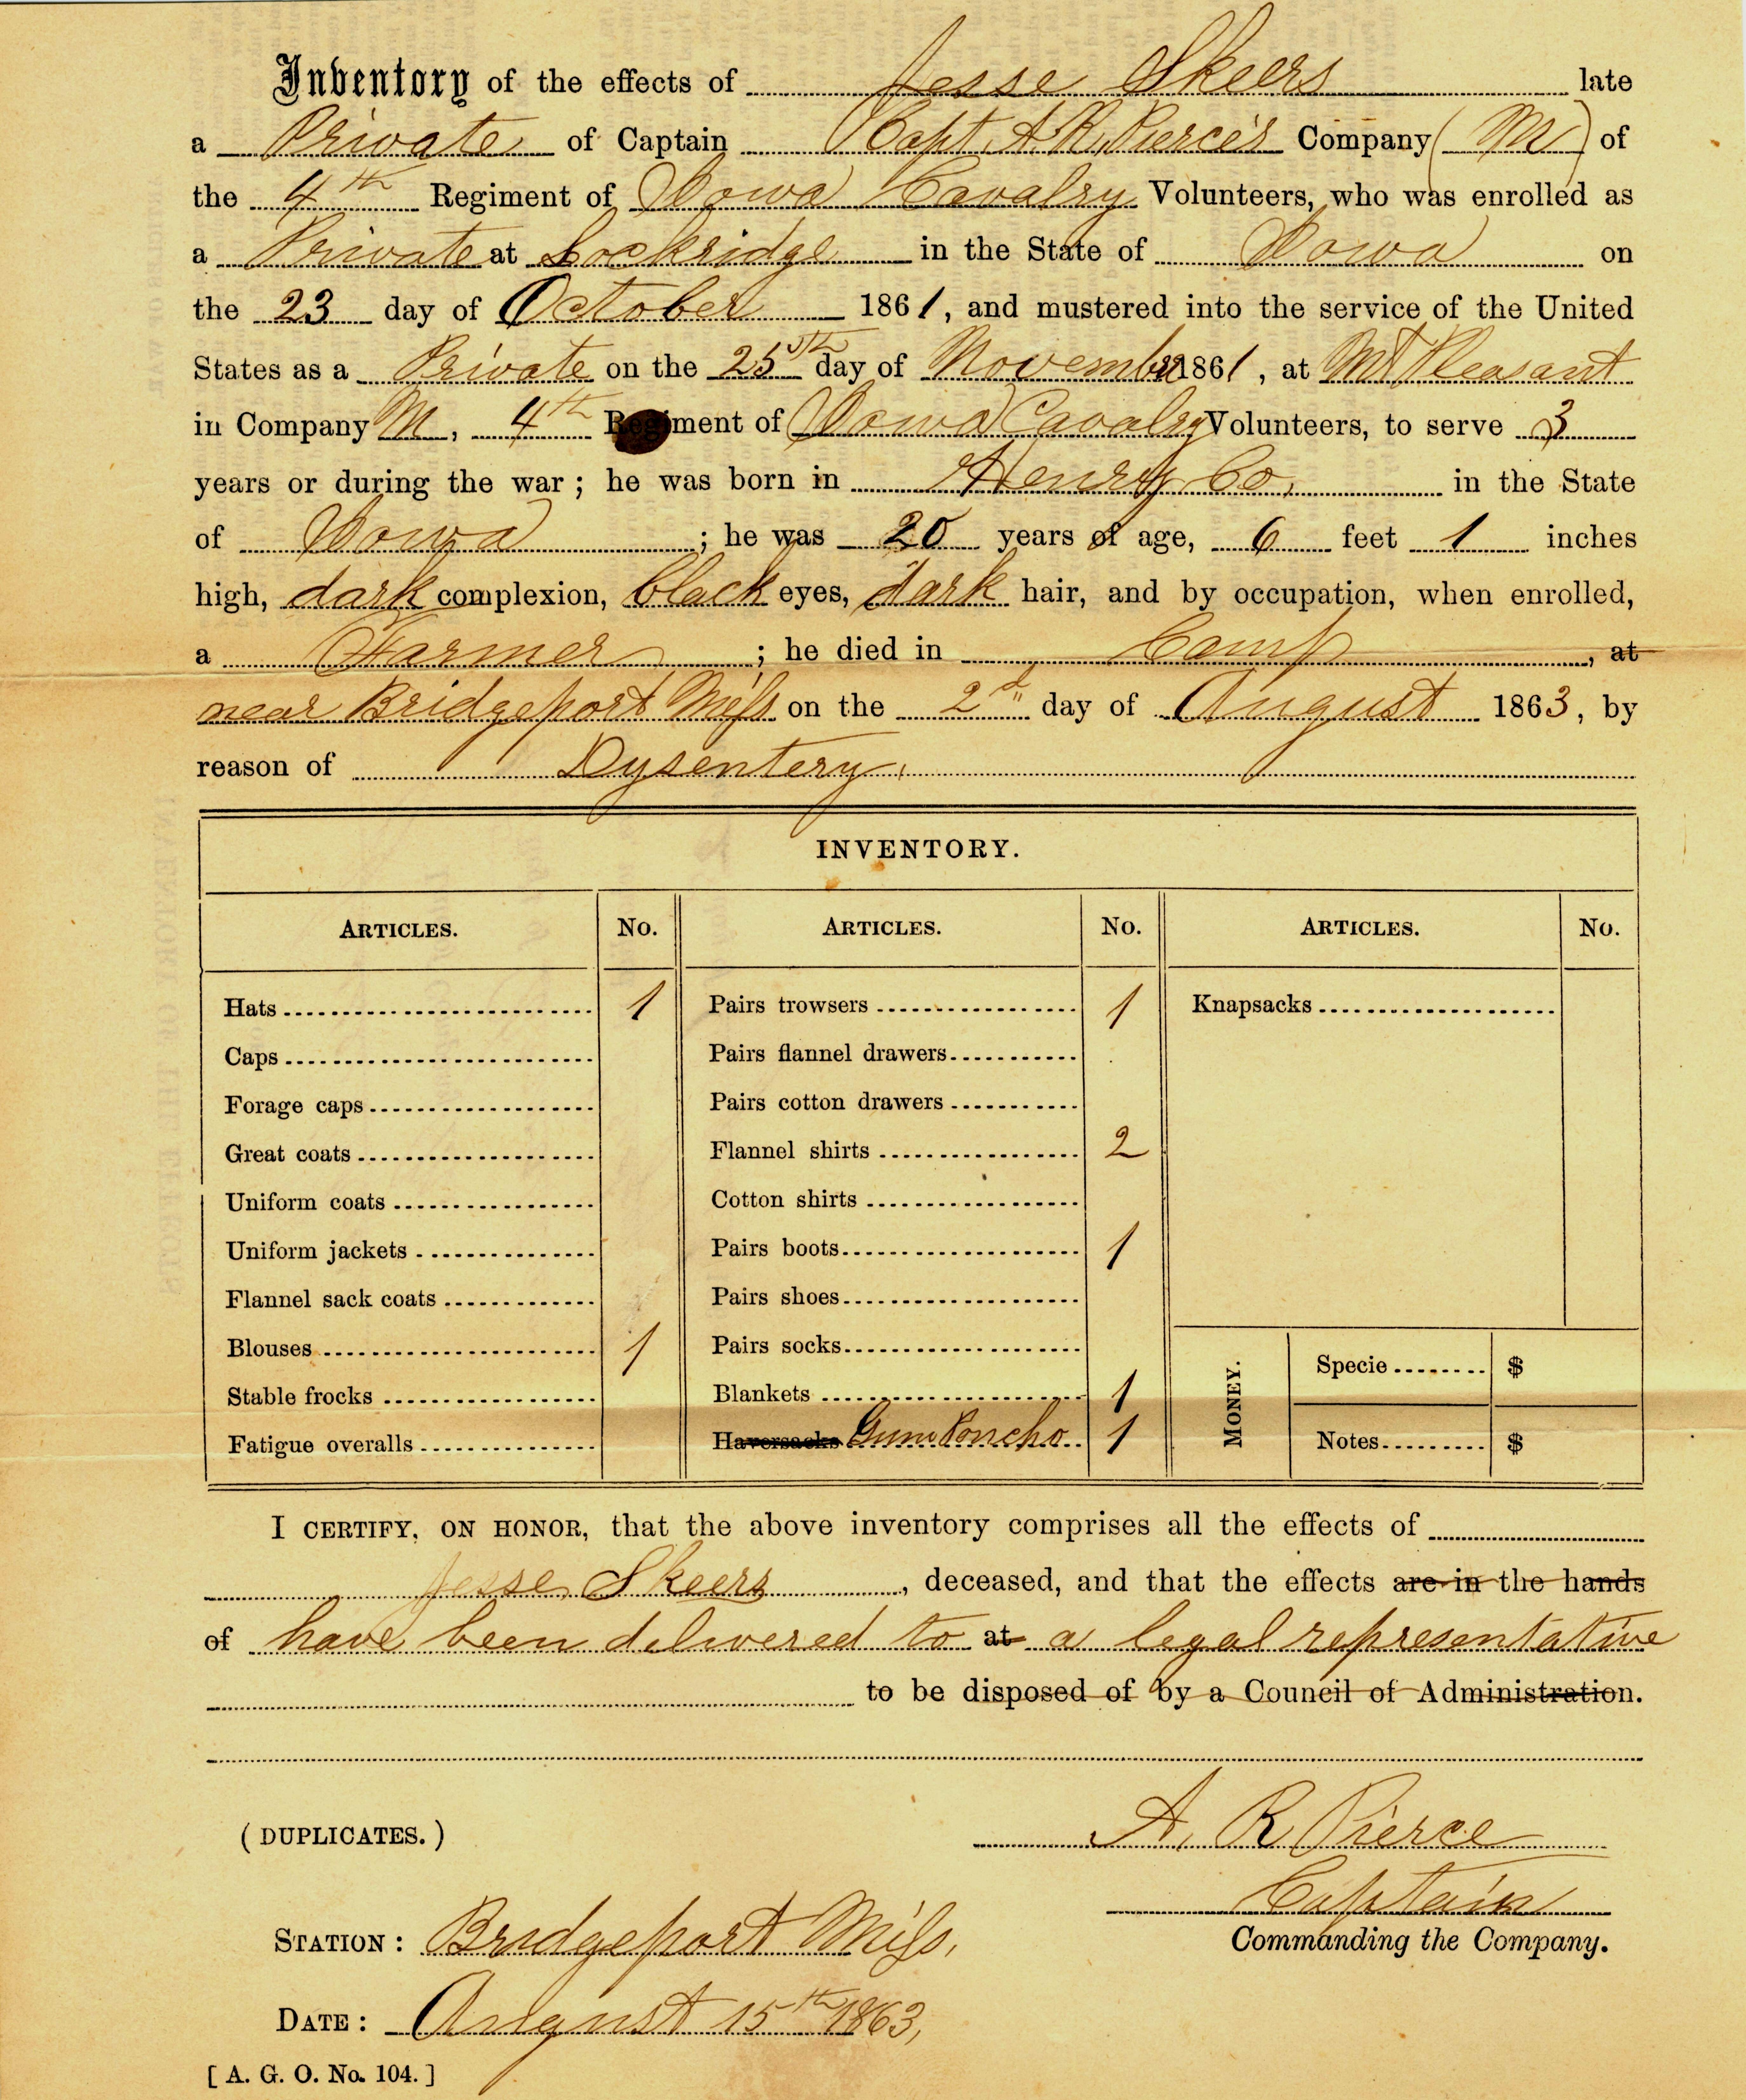 Inventory of the effects of Jesse Skeers late
a Private of Captain Capt. A. R. Pierce's Company (M) of
the 4th Regiment of Iowa Cavalry Volunteers, who was enrolled as
a Private at Lockridge in the State of Iowa on
the 23 day of October 1861, and mustered into the service of the United
States as a Private on the 25th day of November 1861, at Mt Pleasant
in Company M, 4th Regiment of Iowa Cavalry Volunteers, to serve 3
years or during the war; he was born in Henry Co, in the State
of Iowa; he was 20 years of age, 6 feet 1 inches
high, dark complexion, black eyes, dark hair, and by occupation, when enrolled,
a Farmer; he died in Camp, at
near Bridgeport Miss on the 2d day of August 1863, by
reason of Dysentery.
INVENTORY.
ARTICLES. No. ARTICLES. No. ARTICLES. No.
Hats 1 Pairs trowsers 1 Knapsacks
Caps Pairs flannel drawers
Forage caps Pairs cotton drawers
Great coats Flannel shirts 2
Uniform coats Cotton shirts
Uniform jackets Pairs boots 1
Flannel sack coats Pairs shoes
Blouses 1 Pairs socks
Stable frocks Blankets 1
Fatigue overalls Haversacks Gum Poncho 1
MONEY.
Specie $
Notes $
I CERTIFY, ON HONOR, that the above inventory comprises all the effects of
Jesse Skeers, deceased, and that the effects are in the hands
of have been delivered to at a legal representative
to be disposed of by a Council of Administration.
(DUPLICATES.)
A. R Pierce
Captain
Commanding the Company.
STATION: Bridgeport Miss,
DATE: August 15th 1863,
[A. G. O. No. 104.]